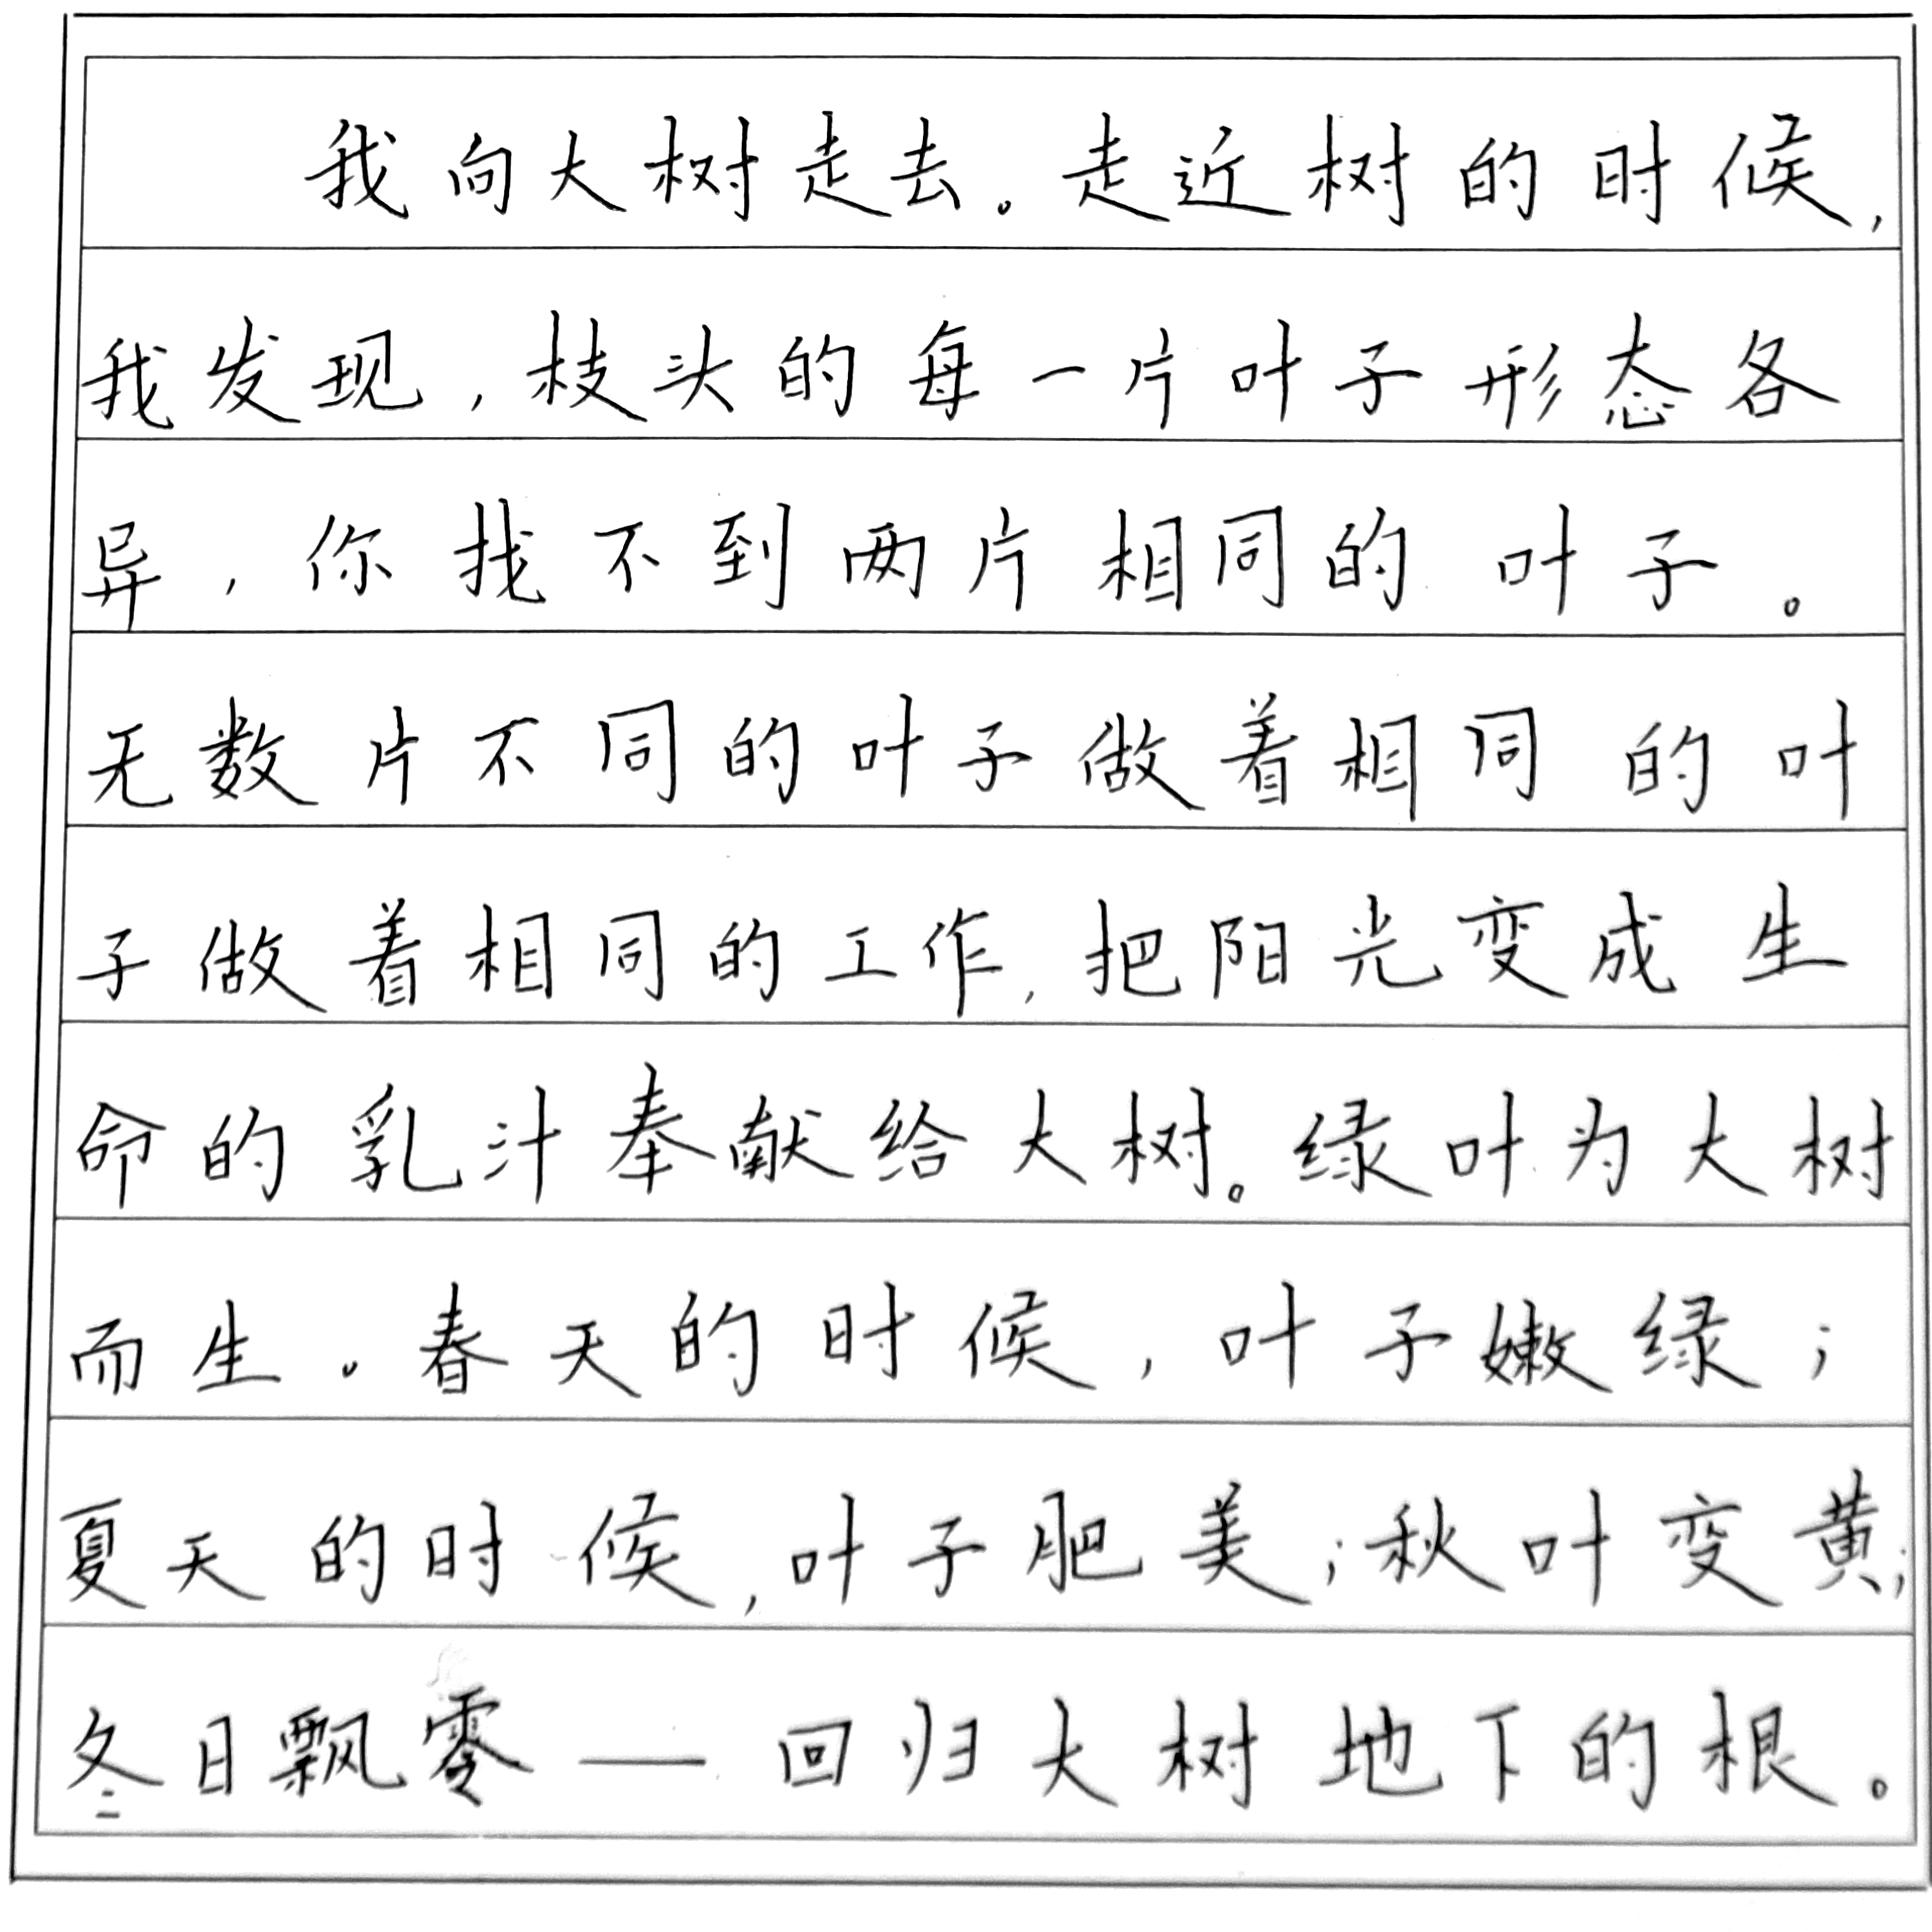 我向大树走去。走近树的时候,
我发现,枝头的每一片叶子形态各
异,你找不到两片相同的叶子。
无数片不同的叶子做着相同的叶
子做着相同的工作,把阳光变成生
命的乳汁奉献给大树。绿叶为大树
而生。春天的时候,叶子嫩绿;
夏天的时候,叶子肥美;秋叶变黄;
冬日飘零—回归大树地下的根。